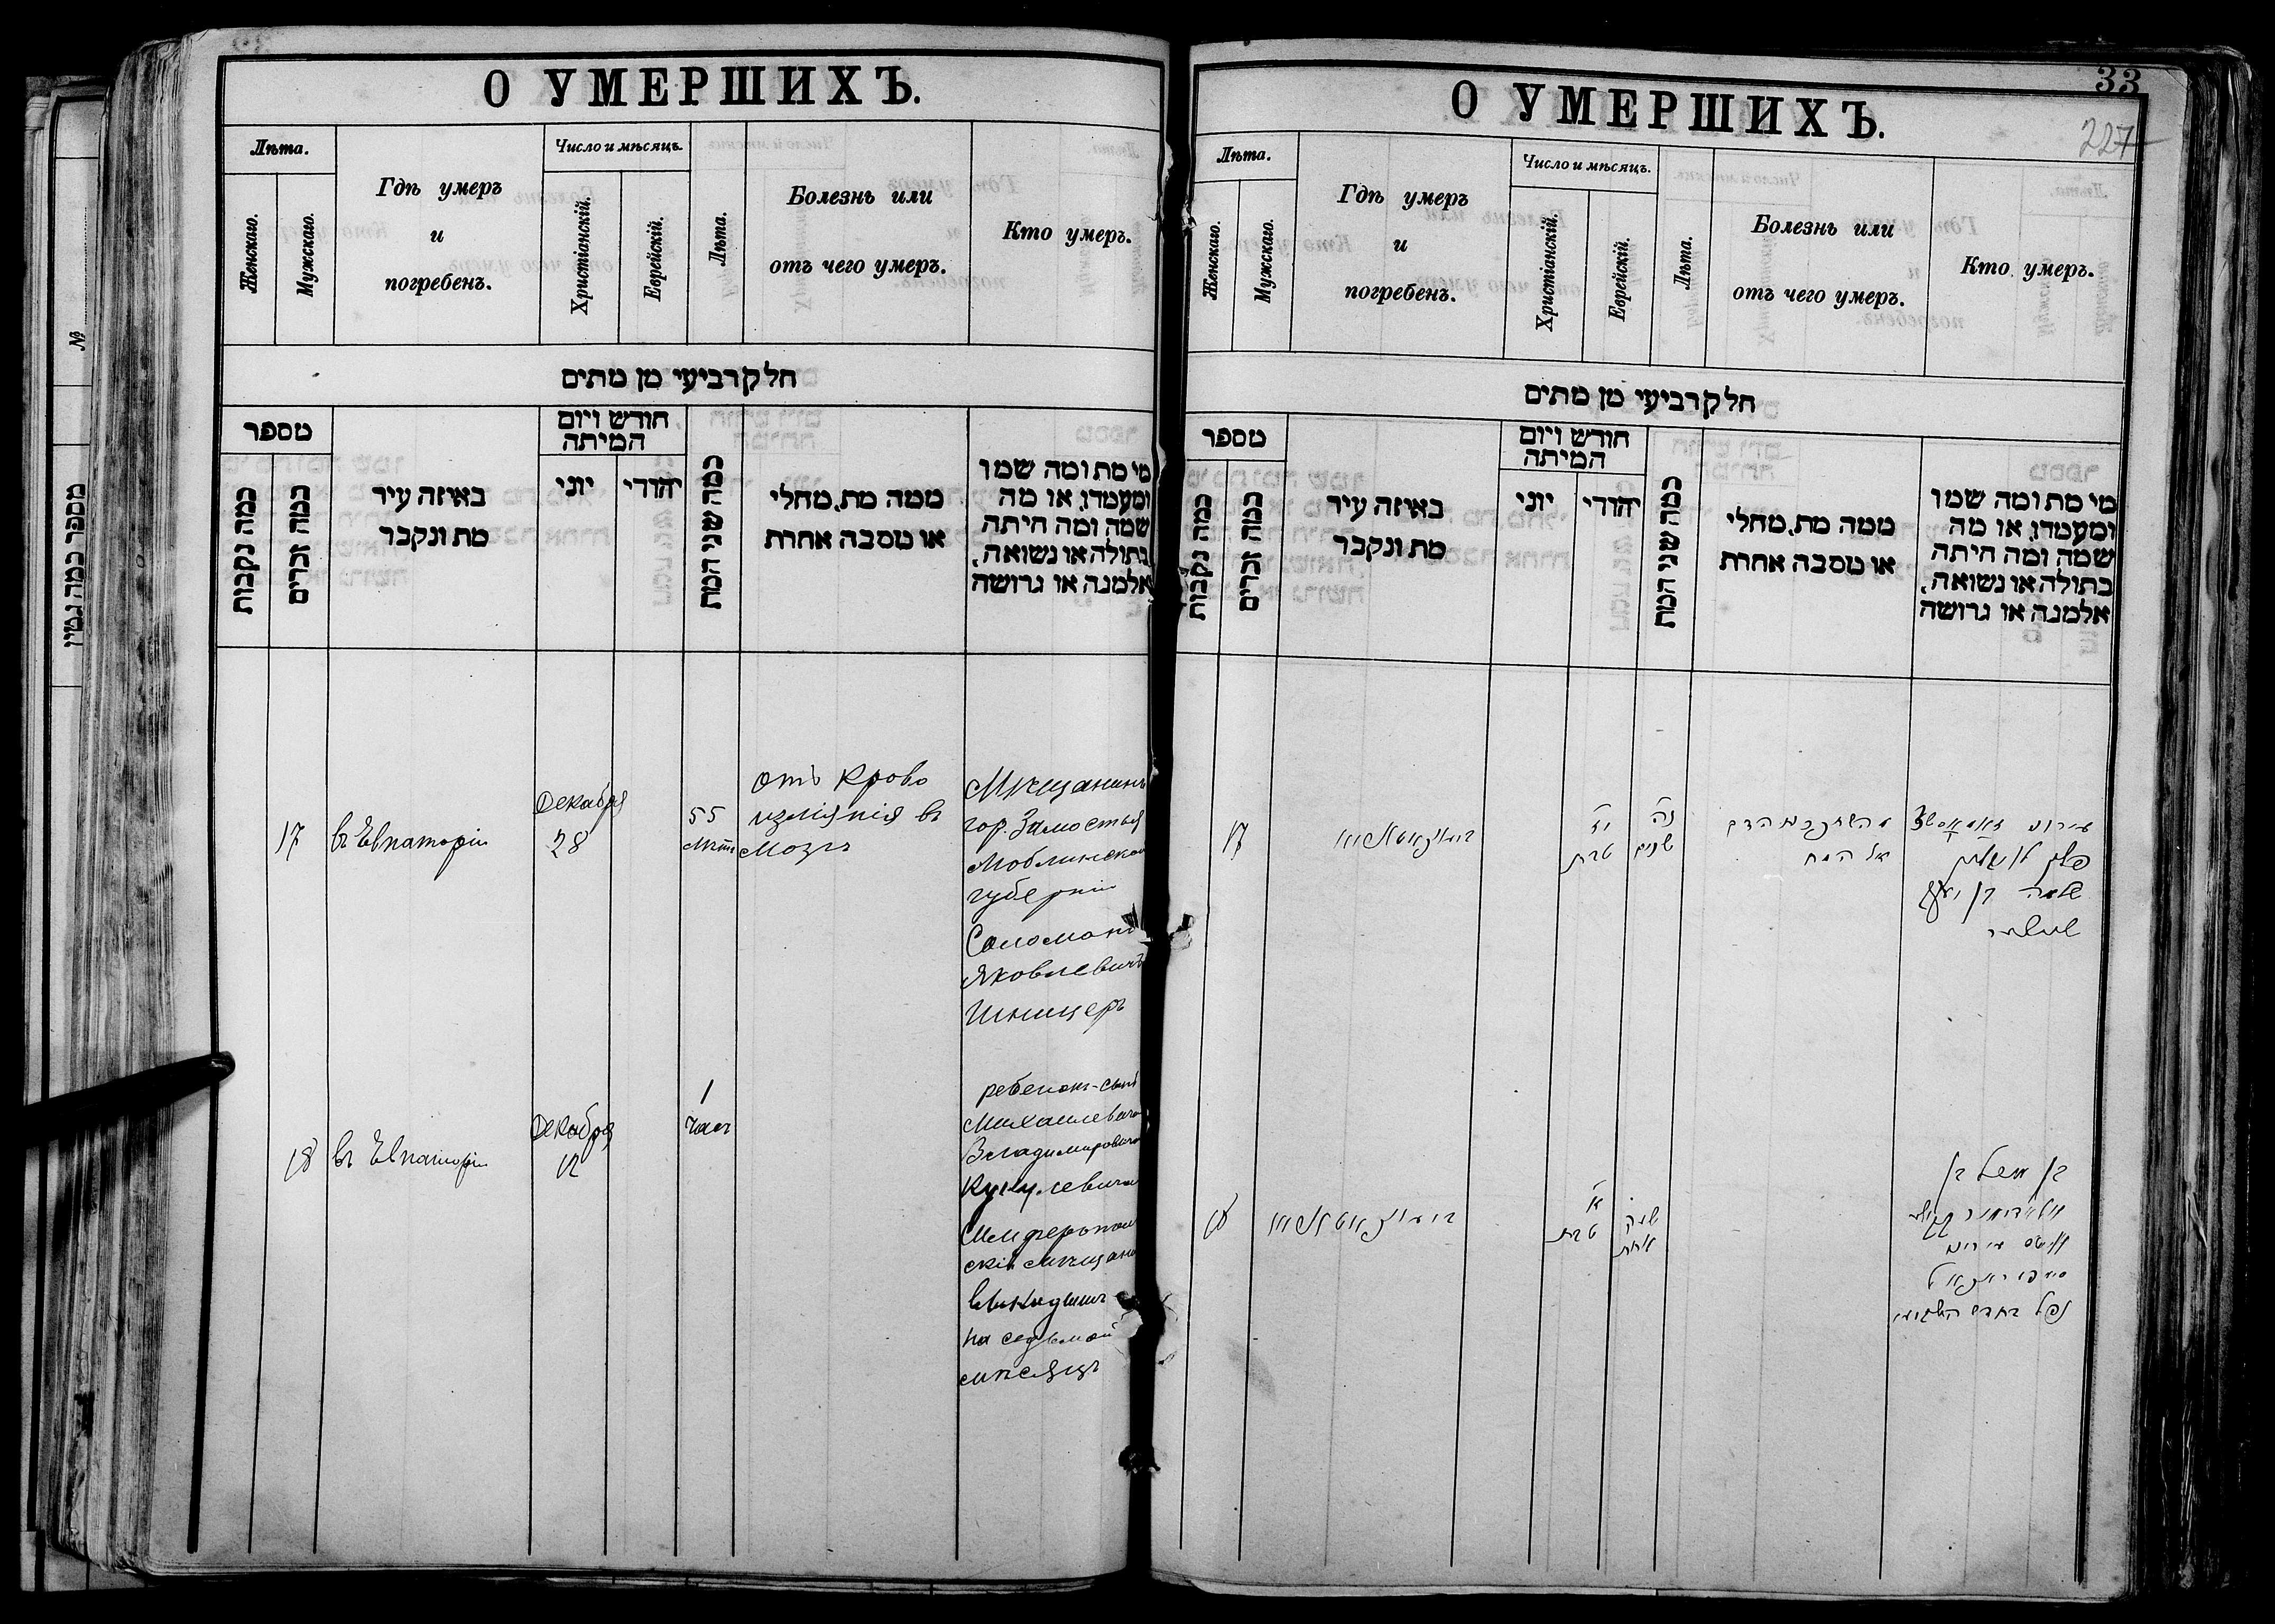 О УМЕРШИХЪ.
Лѣта.
Женскаго.
Мужскаго.
Гдѣ умеръ
и
погребенъ.
Число и мѣсяцъ.
Христіанскій.
Еврейскій.
Лѣта.
Болезнь или
отъ чего умеръ.
Кто умеръ.
חלק רביעי מן מתים
מספר
כמה נקבות
כמה זכרים
באיזה עיר
מת ונקבר
חודש ויום
המיתה
יוני
יהודי
כמה שני המת
ממה מת, מחלי
או מסבה אחרת
מי מת ומה שמו
ומעמדו, או מה
שמה ומה היתה
בתולה או נשואה,
אלמנה או גרושה
17
въ Евпаторіи
Декабря
28
55
лѣтъ
отъ крово
изліянія въ
мозгъ
Мѣщанинъ
гор. Замостья
губерніи
Соломонъ
Яковлевичъ
Шницеръ
18
въ Евпаторіи
Декабря
12
1
часъ
ребенокъ-сынъ
Владимировича
Симферополь
скій мѣщанинъ
выкидышъ
на седьмой
мѣсяцъ
О УМЕРШИХЪ.
33
227
Лѣта.
Женскаго.
Мужскаго.
Гдѣ умеръ
и
погребенъ.
Число и мѣсяцъ.
Христіанскій.
Еврейскій.
Лѣта.
Болезнь или
отъ чего умеръ.
Кто умеръ.
חלק רביעי מן מתים
מספר
כמה נקבות
כמה זכרים
באיזה עיר
מת ונקבר
חודש ויום
המיתה
יוני
יהודי
כמה שני המת
ממה מת, מחלי
או מסבה אחרת
מי מת ומה שמו
ומעמדו, או מה
שמה ומה היתה
בתולה או נשואה,
אלמנה או גרושה
17
טבת
נה
שנים
הדם
אל המח
שלמה בן יעקב
18
א
טבת
שעה
אחת
בן
נפל בחדש השביעי